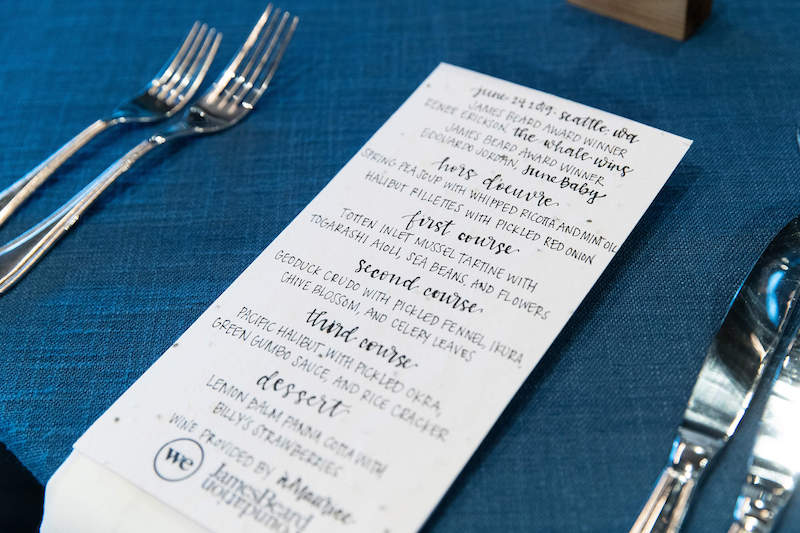 june 24 2019 · seattle, wa
JAMES BEARD AWARD WINNER
RENEE ERICKSON, the whale wins
JAMES BEARD AWARD WINNER
EDOUARDO JORDAN, JuneBaby
hors doeuvre
SPRING PEA SOUP WITH WHIPPED RICOTTA AND MINT OIL
HALIBUT RILLETTES WITH PICKLED RED ONION
first course
TOTTEN INLET MUSSEL TARTINE WITH
TOGARASHI AIOLI, SEA BEANS, AND FLOWERS
second course
GEODUCK CRUDO WITH PICKLED FENNEL, IKURA,
CHIVE BLOSSOM, AND CELERY LEAVES
third course
PACIFIC HALIBUT WITH PICKLED OKRA,
GREEN GUMBO SAUCE, AND RICE CRACKER
dessert
LEMON BALM PANNA COTTA WITH
BILLY'S STRAWBERRIES
WINE PROVIDED BY àMaurice
we
James Beard
foundation